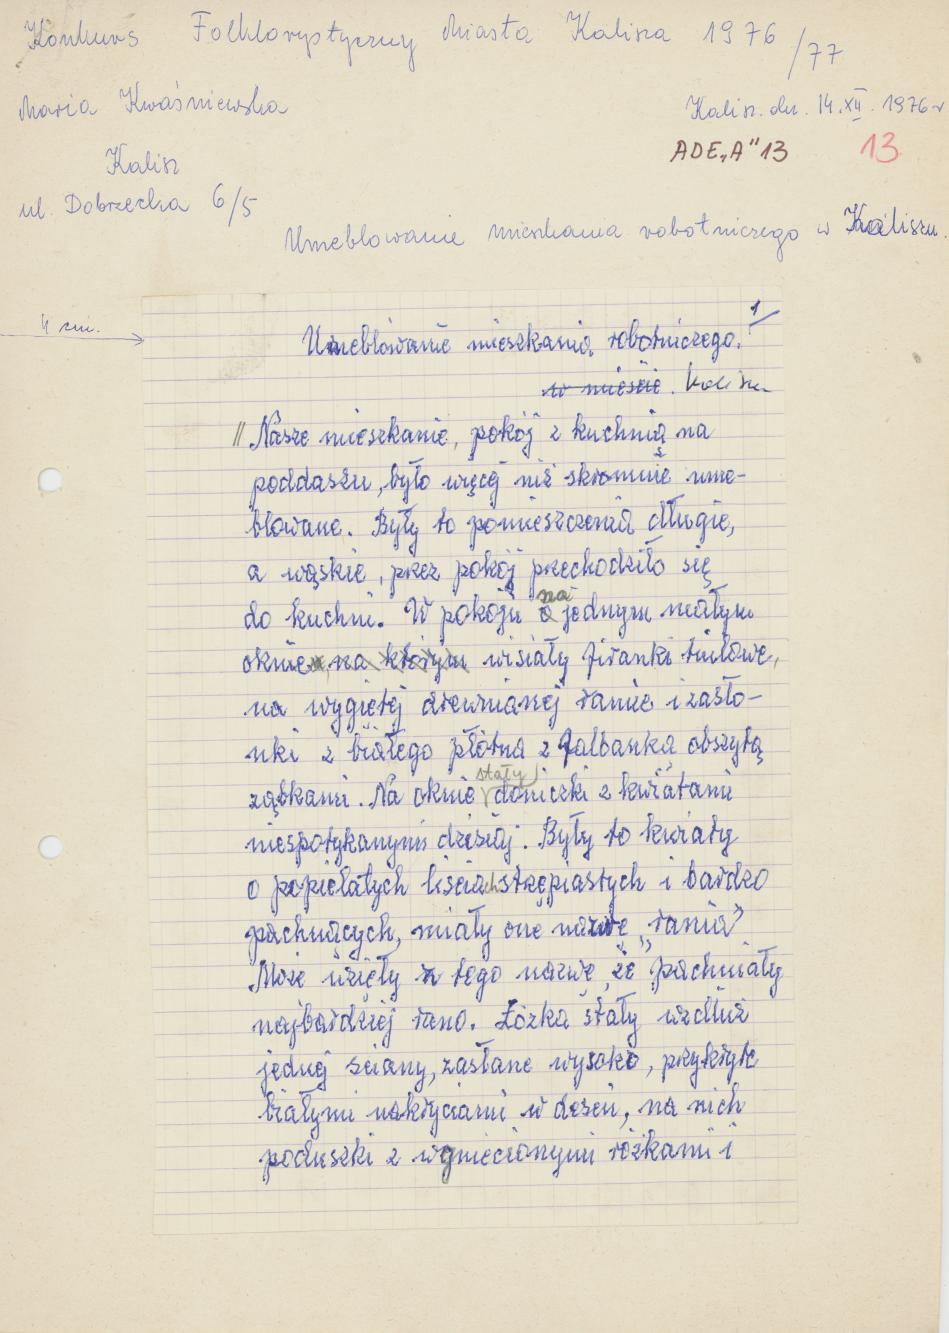 Konkurs Folklorystyczny Miasta Kalisza 1976/77
Maria Kwaśniewska
Kalisz. dn. 14.XII.1976 r
ADE„A"13 13
Kalisz
ul. Dobrzecka 6/5
Umeblowanie mieszkania robotniczego w Kaliszu.
4 cm.
1/
Umeblowanie mieszkania robotniczego.
w mieście. Kalisza
// Nasze mieszkanie, pokój z kuchnią na
poddaszu, było więcej niż skromnie ume-
blowane. Były to pomieszczenia długie,
a wąskie, przez pokój przechodziło się
na
do kuchni. W pokoju o jednym małym
oknie na którym wisiały firanki tiulowe,
na wygiętej drewnianej ramie i zasło-
nki z białego płótna z falbanką obszytą
stały
ząbkami. Na oknie doniczki z kwiatami
niespotykanymi dzisiaj. Były to kwiaty
o popielatych liściach strzępiastych i bardzo
pachnących, miały one nazwę „rania"
Może wzięły z tego nazwę, że pachniały
najbardziej rano. Łóżka stały wzdłuż
jednej ściany, zasłane wysoko, przykryte
białymi nakryciami w deseń, na nich
poduszki z wgniecionymi różkami i